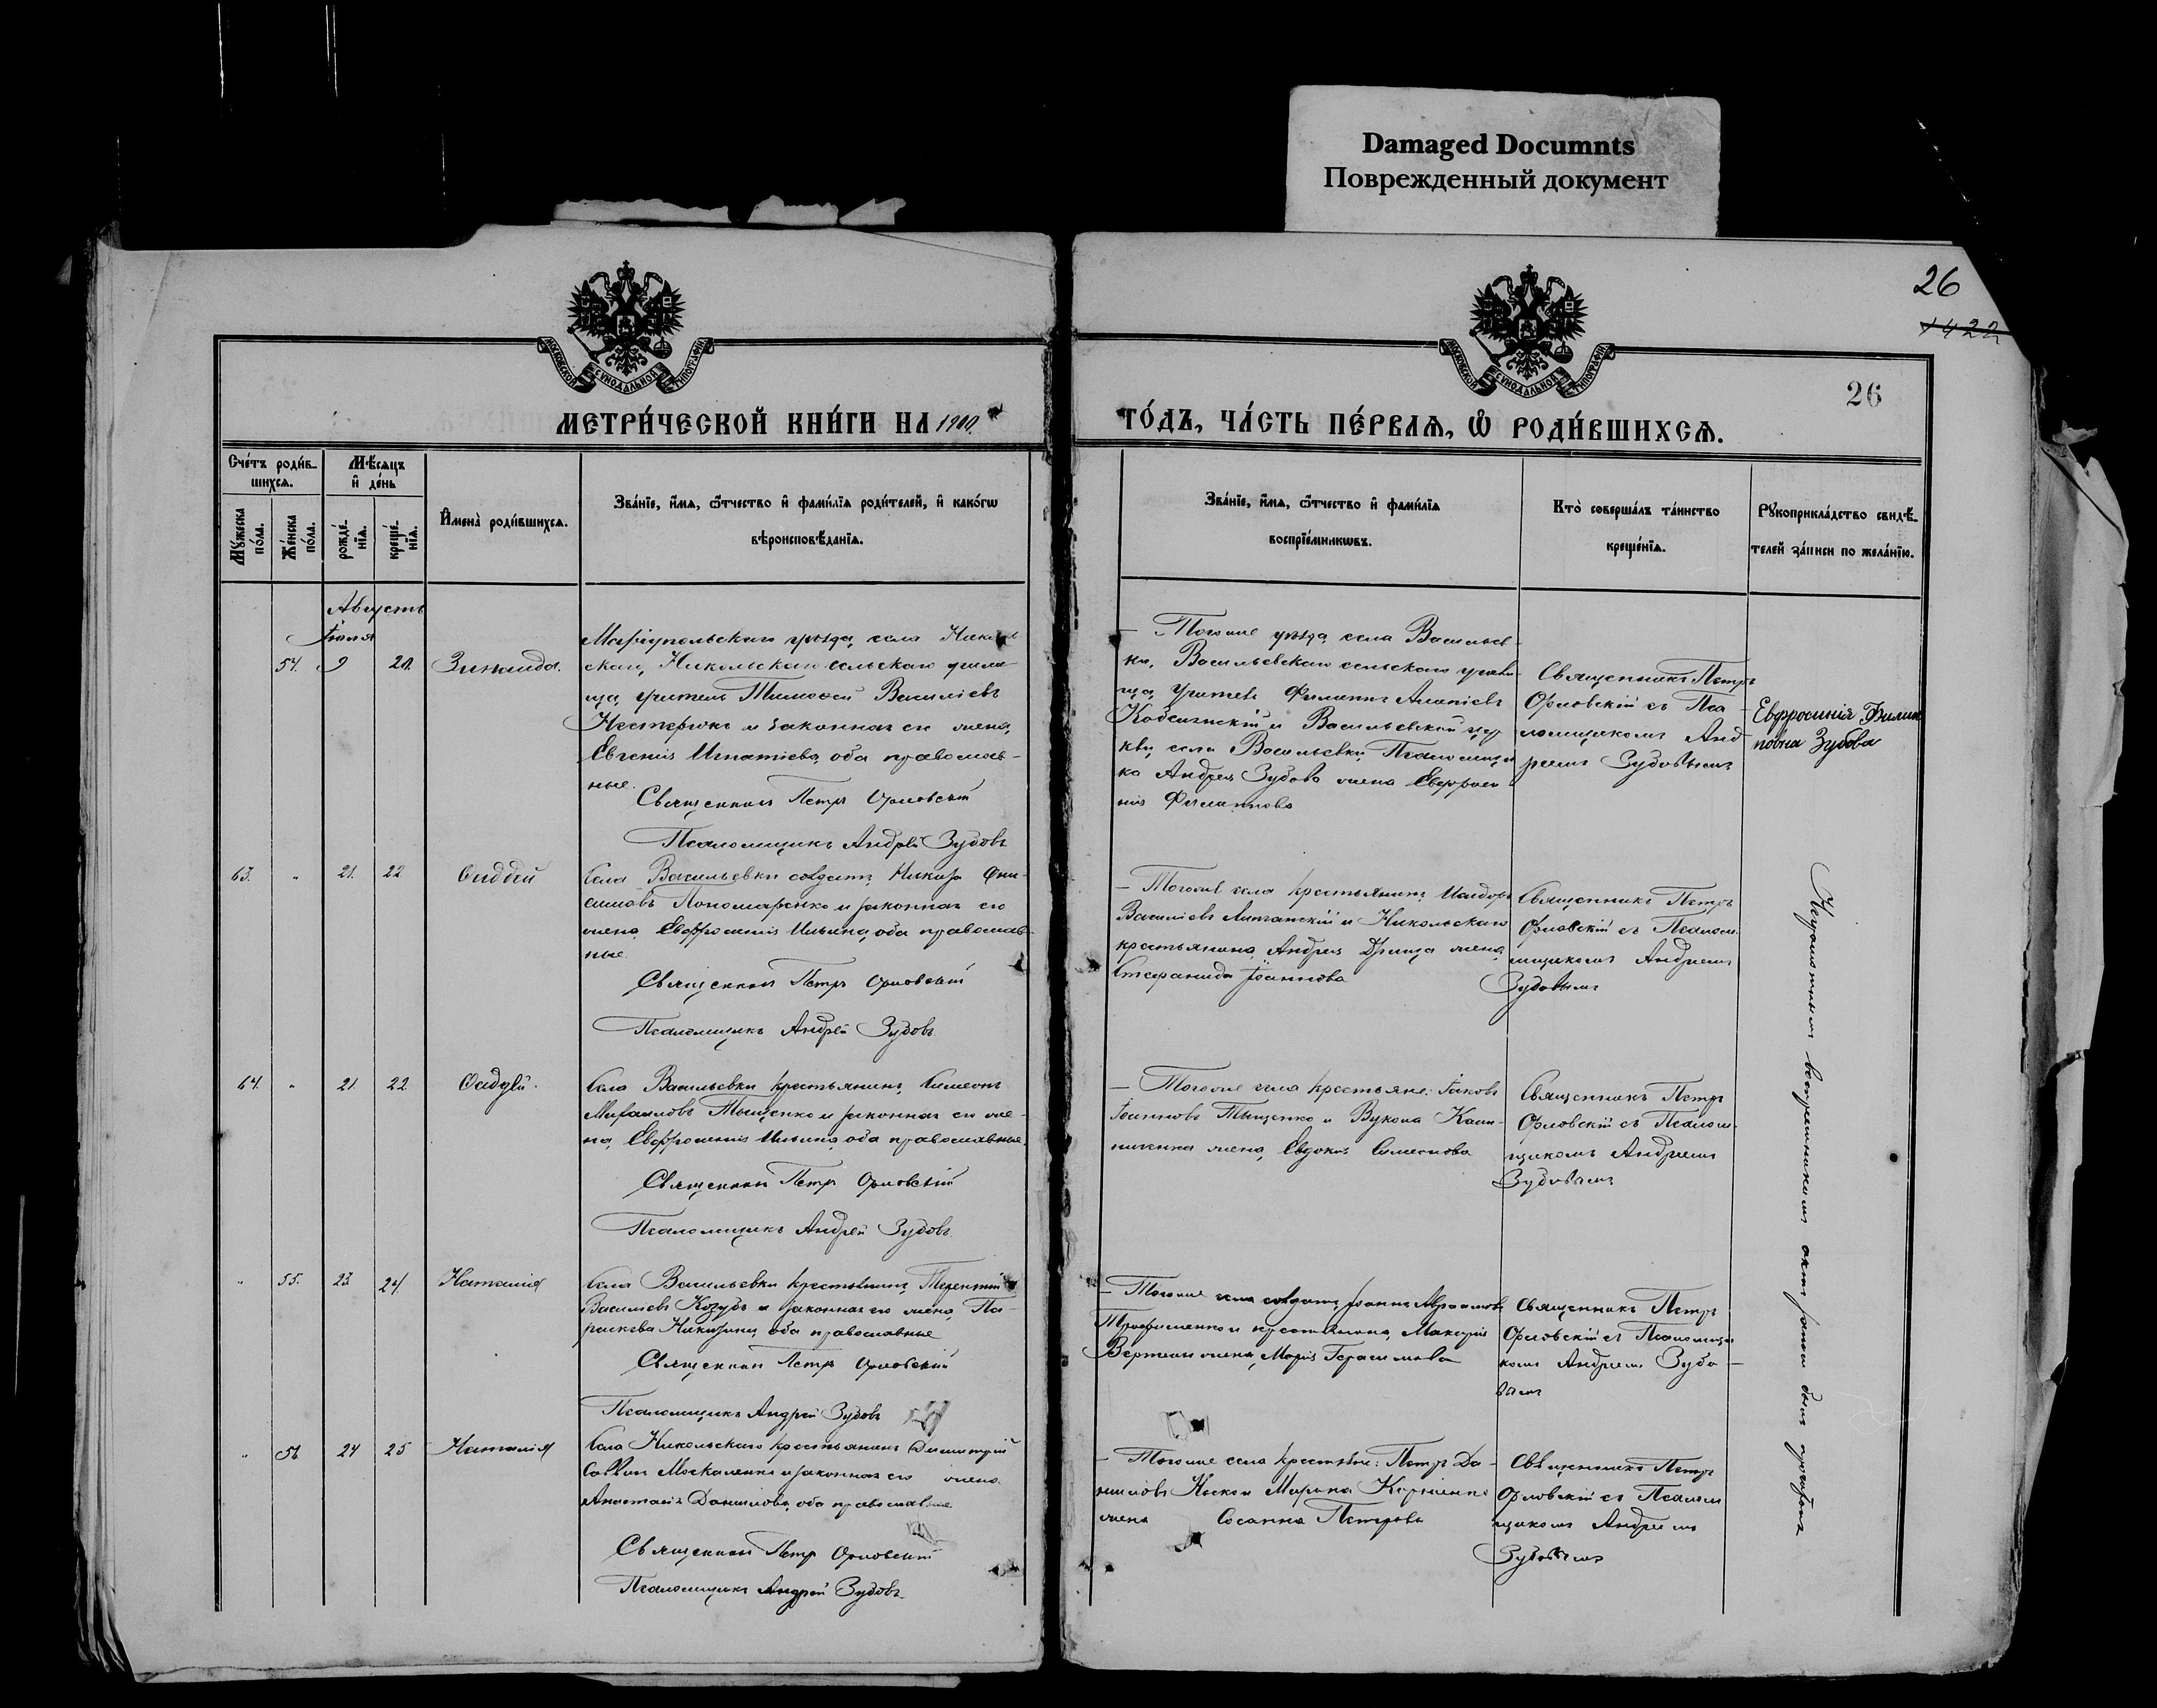 Damaged Documnts
Поврежденный документ
26
1422
26
МОСКОВСКОЙ СѴНОДАЛЬНОЙ ТИПОГРАФІИ
МОСКОВСКОЙ СѴНОДАЛЬНОЙ ТИПОГРАФІИ
МЕТРИ́ЧЕСКОЙ КНИ́ГИ НА 1900
ГО́ДЪ, ЧА́СТЬ ПЕ́РВАѦ, Ѡ РОДИ́ВШИХСѦ.
Сче́тъ роди́в-
шихсѧ.
Мꙋ́жеска
по́ла.
Же́нска
по́ла.
Мѣ́сѧцъ
и҆ де́нь
рожде́-
нїѧ.
креще́-
нїѧ.
И҆мена̀ роди́вшихсѧ.
Зва́нїе, и҆́мѧ, ѻ҆́тчество и҆ фами́лїѧ роди́телей, и҆ како́гѡ
вѣроисповѣ́данїѧ.
Зва́нїе, и҆́мѧ, ѻ҆́тчество и҆ фами́лїѧ
воспрїе́мникѡвъ.
Кто̀ соверша́лъ та́инство
креще́нїѧ.
Рꙋкоприкла́дство свидѣ́-
телей за́писи по жела́нїю.
Августъ
Іюля
54. 9 20. Зинаида.
Маріупольскаго уѣзда, села Николь
скаго, Никольскаго сельскаго учили-
ща, учитель Тимоѳей Василіевъ
Нестерюкъ и законная его жена,
Евгенія Игнатіева, оба православ-
ные.
Священникъ Петръ Орловскій
Псаломщикъ Андрей Зубовъ
– Тогоже уѣзда, села Васильев-
ки, Васильевскаго сельскаго учили-
ща, учитель Филиппъ Ананіевъ
и Васильевской цер
кви, села Васильевки, Псаломщи
ка Андрея Зубова жена Евфроси
нія Филиппова
Священникъ Петръ
Орловскій съ Пса-
ломщикомъ Анд-
реемъ Зубовымъ
Евфросинія Филип
повна Зубова
63. " 21. 22
Села Васильевки солдатъ, Никита Они-
симовъ Пономаренко и законная его
жена, Евфросинія Ильина, оба православ-
ные.
Священникъ Петръ Орловскій
Псаломщикъ Андрей Зубовъ.
– Тогоже села крестьянинъ, Исидоръ
Василіевъ и Никольскаго
крестьянина, Андрея жена,
Стефанида Іоаннова
Священникъ Петръ
Орловскій съ Псалом-
щикомъ Андреемъ
Зубовымъ
64. " 21. 22 Ѳаддѣй.
Села Васильевки крестьянинъ, Симеонъ
Тыщенко и законная его же-
на, Евфросинія Ильина, оба православные.
Священникъ Петръ Орловскій
Псаломщикъ Андрей Зубовъ.
– Тогоже села крестьяне: Іаковъ
Іоанновъ Тыщенко и Вукола Кали-
ниченка жена, Евдокія Симеонова
Священникъ Петръ
Орловскій съ Псалом-
щикомъ Андреемъ
Зубовымъ
" 55. 23. 24 Наталія
Села Васильевки крестьянинъ, Терентій
Василіевъ Козубъ и законная его жена, Па-
раскева Никитина, оба православные
Священникъ Петръ Орловскій
Псаломщикъ Андрей Зубовъ
– Тогоже села солдатъ, Іоаннъ Авраамовъ
Трофименко и крестьянина, Макарія
жена, Марія Герасимова
Священникъ Петръ
Орловскій съ Псаломщи
комъ Андреемъ Зубо-
вымъ
" 56. 24 25 Наталія
Села Никольскаго крестьянинъ Димитрій
Саввинъ Москаленко и законная его жена
Анастасія Данилова, оба православные
Священникъ Петръ Орловскій
Псаломщикъ Андрей Зубовъ.
– Тогоже села крестьяне: Петръ Да-
ниловъ и
жена Сосанна Петрова
Священникъ Петръ
Орловскій съ Псалом
щикомъ Андреемъ
Зубовымъ
Неграмотнымъ воспріемникамъ актъ записи былъ прочитанъ